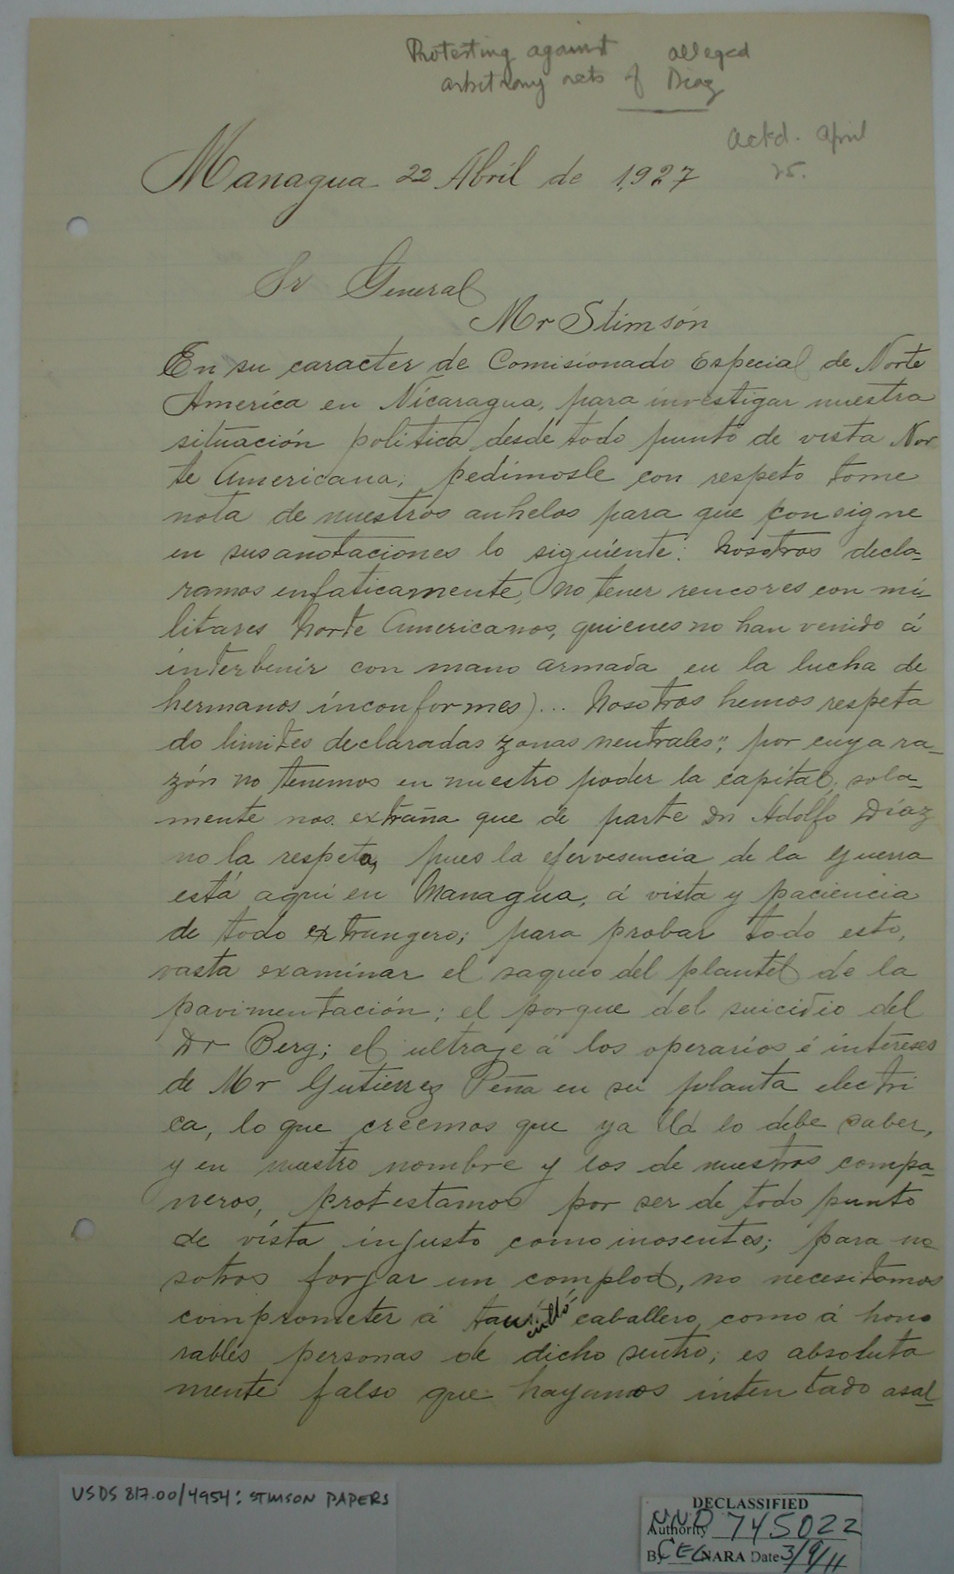 Protesting against alleged
arbitrary acts of Diaz
Ackd. April
25.
Managua 22 Abríl de 1,927
Sr General
Mr Stimsón
En su caracter de Comisionado Especial de Norte
America en Nicaragua, para investigar nuestra
situación politica desde todo punto de vista Nor
te Americana; pedimosle con respeto tome
nota de nuestros anhelos para que consigne
en sus anotaciones lo siguiente: Nosotros decla-
ramos enfaticamente, no tener rencores con mi-
litares Norte Americanos, quienes no han venido á
interbenir con mano armada en la lucha de
hermanos inconformes)... Nosotros hemos respeta
do limites declaradas zonas neutrales"; por cuya ra-
zón no tenemos en nuestro poder la capital; sola-
mente nos extraña que de parte Dn Adolfo Díaz
no la respeta, pues la efervesencia de la guerra
está aquí en Managua, á vista y paciencia
de todo extrangero; para probar todo esto,
vasta examinar el saqueo del plantel de la
pavimentación; el porque del suicidio del
Dr Berg; el ultraje á los operarios é intereses
de Mr Gutierrez Peña en su planta electri
ca, lo que creemos que ya Ud lo debe saber,
y en nuestro nombre y los de nuestros compa-
ñeros, protestamos por ser de todo punto
de vista injusto como inosentes; para no-
sotros forjar un complod, no necesitamos
comprometer á tan culto caballero, como á hono
rables personas de dicho sentro; es absoluta
mente falso que hayamos intentado asal-
USDS 817.00/4954: STIMSON PAPERS
DECLASSIFIED
Authority NND 745022
By CEC NARA Date 3/9/11